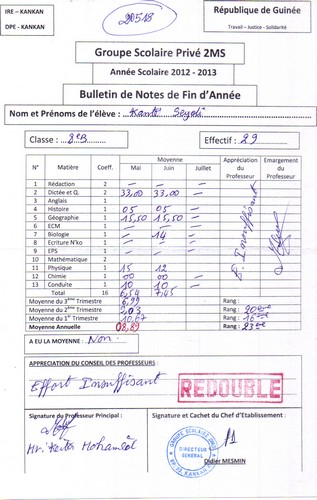 IRE – KANKAN
DPE - KANKAN
20518
République de Guinée
Travail – Justice - Solidarité
Groupe Scolaire Privé 2MS
Année Scolaire 2012 - 2013
Bulletin de Notes de Fin d'Année
Nom et Prénoms de l'élève : Kanté
Classe : 8eB
Effectif : 29
N° Matière Coeff. Moyenne Appréciation du Professeur Emargement du Professeur
Mai Juin Juillet
1 Rédaction 2 – – –
2 Dictée et Q. 2 33,00 33,00 –
3 Anglais 1 – – –
4 Histoire 1 05 05 –
5 Géographie 1 15,50 15,50 –
6 ECM 1 – – –
7 Biologie 1 – 14 –
8 Ecriture N'ko 1 – – –
9 EPS 1 – – –
10 Mathématique 2 – – –
11 Physique 1 15 12
12 Chimie 1 00 00 –
13 Conduite 1 10 10 –
Total 16 6,54 7,45
E. Insuffisant
Moyenne du 3ème Trimestre 6,99 Rang :
Moyenne du 2ème Trimestre Rang : 20ème
Moyenne du 1er Trimestre 10,67 Rang : 16ème
Moyenne Annuelle 08,89 Rang : 23ème
A EU LA MOYENNE : Non.
APPRECIATION DU CONSEIL DES PROFESSEURS :
Effort Insuffisant
REDOUBLE
Signature du Professeur Principal :
Signature et Cachet du Chef d'Etablissement :
Mr. Keita Mohamed
GROUPE SCOLAIRE 2MS
DIRECTEUR
GENERAL
Didier MESMIN